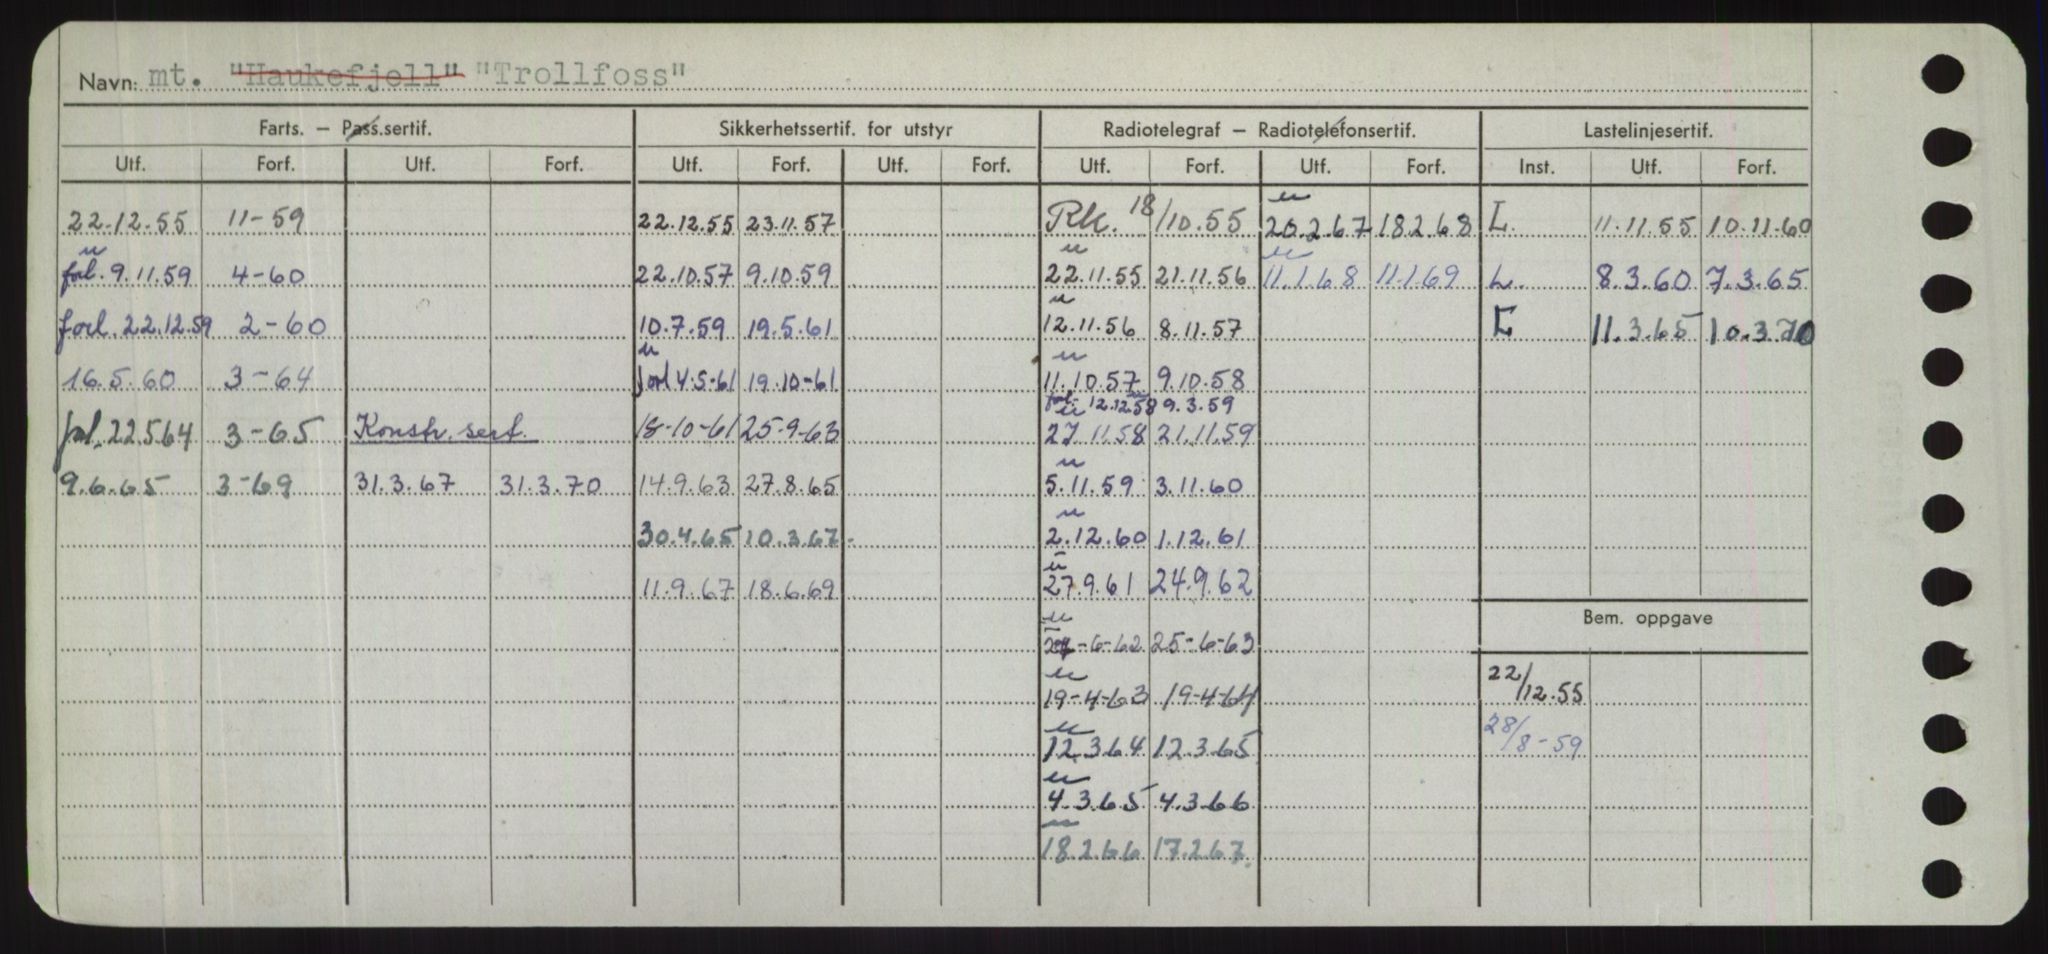 Navn: mt. "Haukefjell" "Trollfoss"
Farts. – Pass.sertif. Sikkerhetssertif. for utstyr Radiotelegraf – Radiotelefonsertif. Lastelinjesertif.
Utf. Forf. Utf. Forf. Utf. Forf. Utf. Forf. Utf. Forf. Utf. Forf. Inst. Utf. Forf.
22.12.55 11-59 22.12.55 23.11.57 Rk. 18/10.55 u 20.2.67 18.2.68 L. 11.11.55 10.11.60
u forl. 9.11.59 4-60 22.10.57 9.10.59 u 22.11.55 21.11.56 u 11.1.68 11.1.69 L. 8.3.60 7.3.65
forl. 22.12.59 2-60 10.7.59 19.5.61 u 12.11.56 8.11.57 L 11.3.65 10.3.70
16.5.60 3-64 u forl 4.5-61 19.10-61 u 11.10.57 9.10.58
forl. 12.12.58 9.3.59
forl. 22.5.64 3-65 Konstr. sert. 18-10-61 25-9-63 u 27.11.58 21.11.59
9.6.65 3-69 31.3.67 31.3.70 14.9.63 27.8.65 u 5.11.59 3.11.60
30.4.65 10.3.67. u 2.12.60 1.12.61
11.9.67 18.6.69 u 27.9.61 24.9.62
u -6-62 25-6-63
Bem. oppgave
u 19-4-63 19-4-64 22/12.55
u 12.3.64 12.3.65 28/8-59
u 4.3.65 4.3.66
u 18.2.66 17.2.67.